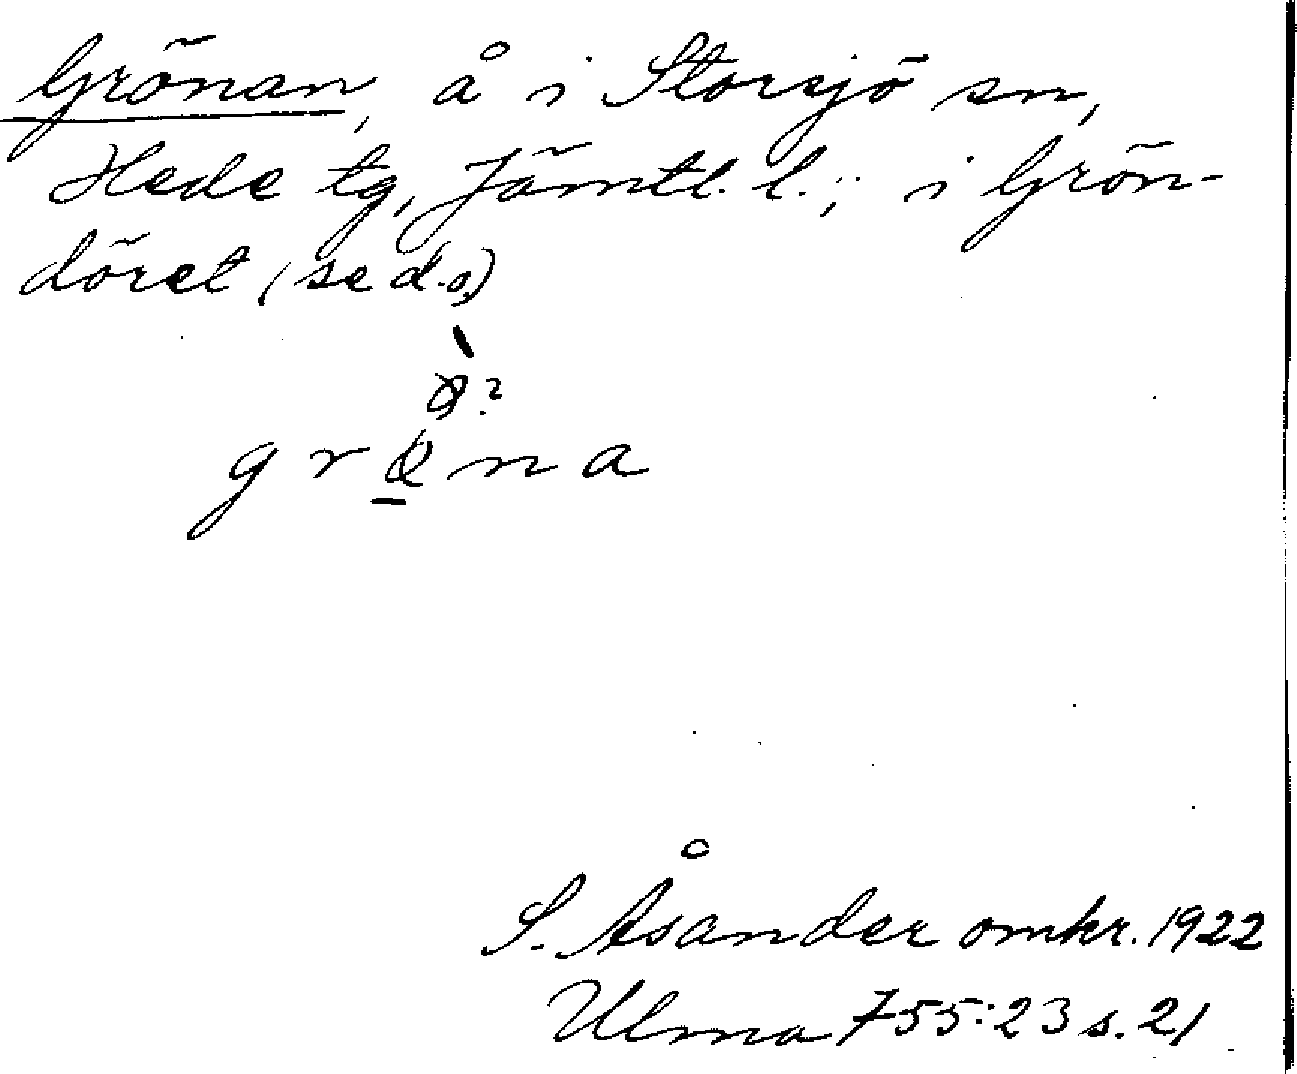 Grönan, å i Storsjö sn,
Hede tg, Jämtl. l.; i Grön-
döret (se d.o.)
ø̀?
grøna
S. Åsander omkr. 1922
Ulma 755:23 s. 21